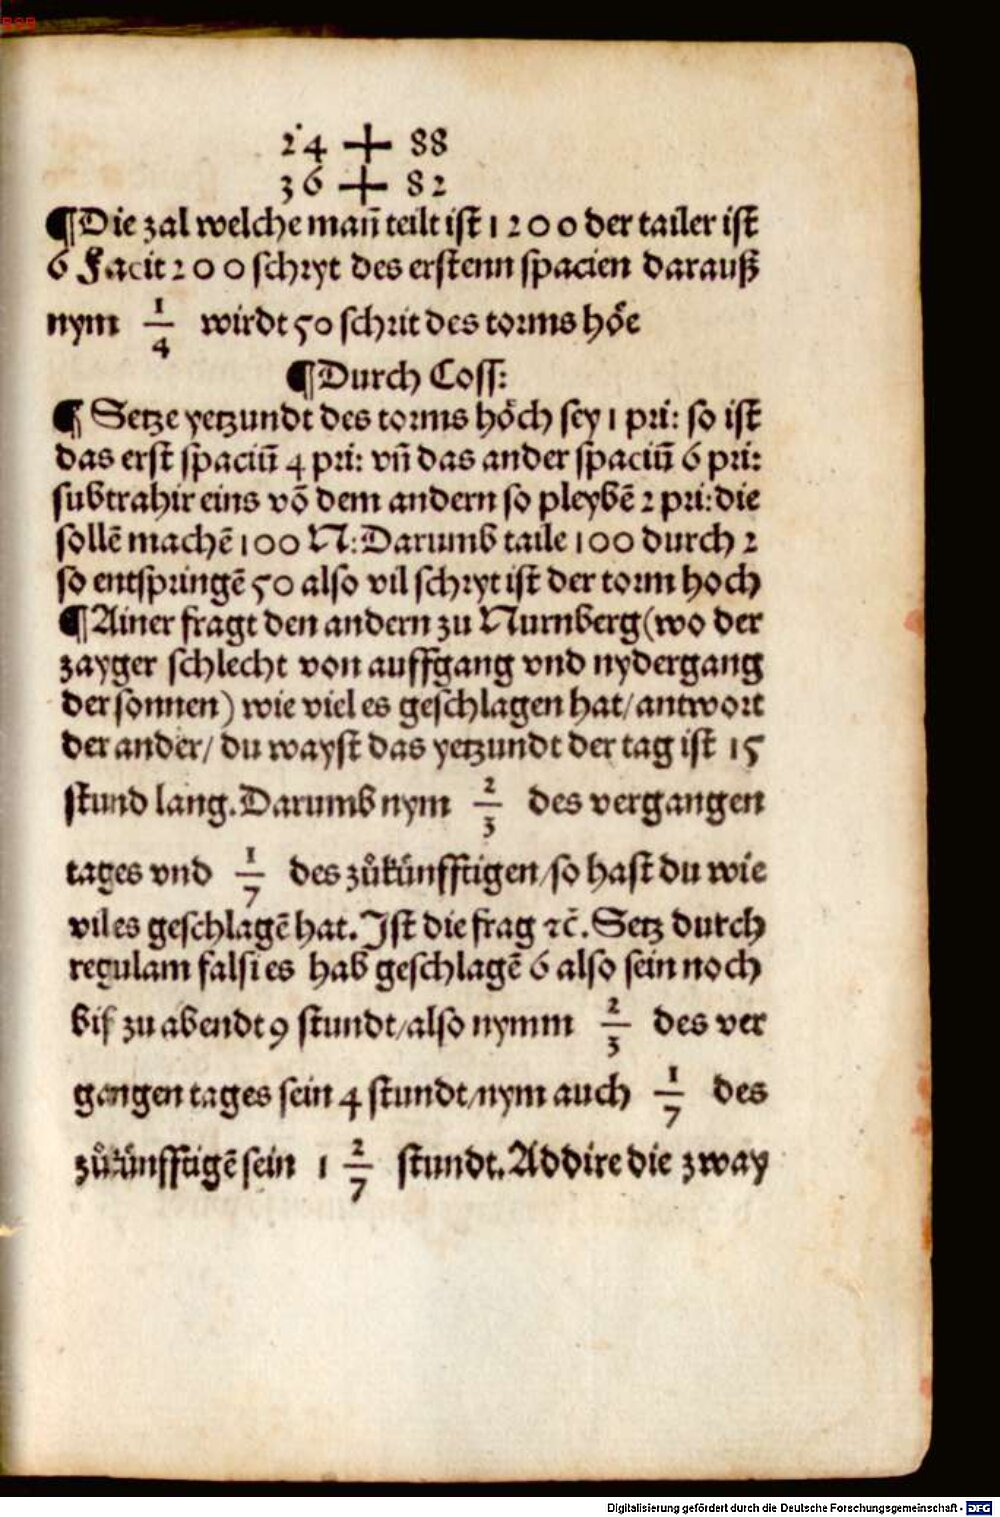 24 + 88
36 + 82
¶Die zal welche mañ teilt ist 1200 der tailer ist
6 Facit 200 schryt des erstenn spacien darauß
nym 1/4 wirdt 50 schrit des torms höe
¶Durch Coss:
¶ Setze yetzundt des torms höch sey 1 pri: so ist
das erst spaciū 4 pri: vñ das ander spaciū 6 pri:
subtrahir eins võ dem andern so pleybē 2 pri: die
sollē machē 100 N: Darumb taile 100 durch 2
so entspringē 50 also vil schryt ist der torm hoch
¶Ainer fragt den andern zu Nurnberg (wo der
zayger schlecht von auffgang vnd nydergang
der sonnen) wie viel es geschlagen hat/ antwort
der ander/ du wayst das yetzundt der tag ist 15
stund lang. Darumb nym 2/3 des vergangen
tages vnd 1/7 des zůkünfftigen/ so hast du wie
vil es geschlagē hat. Ist die frag ⁊c̄. Setz durch
regulam falsi es hab geschlagē 6 also sein noch
biß zu abendt 9 stundt/ also nymm 2/3 des ver
gangen tages sein 4 stundt/ nym auch 1/7 des
zůkünfftigē sein 1 2/7 stundt. Addire die zway
Digitalisierung gefördert durch die Deutsche Forschungsgemeinschaft - DFG